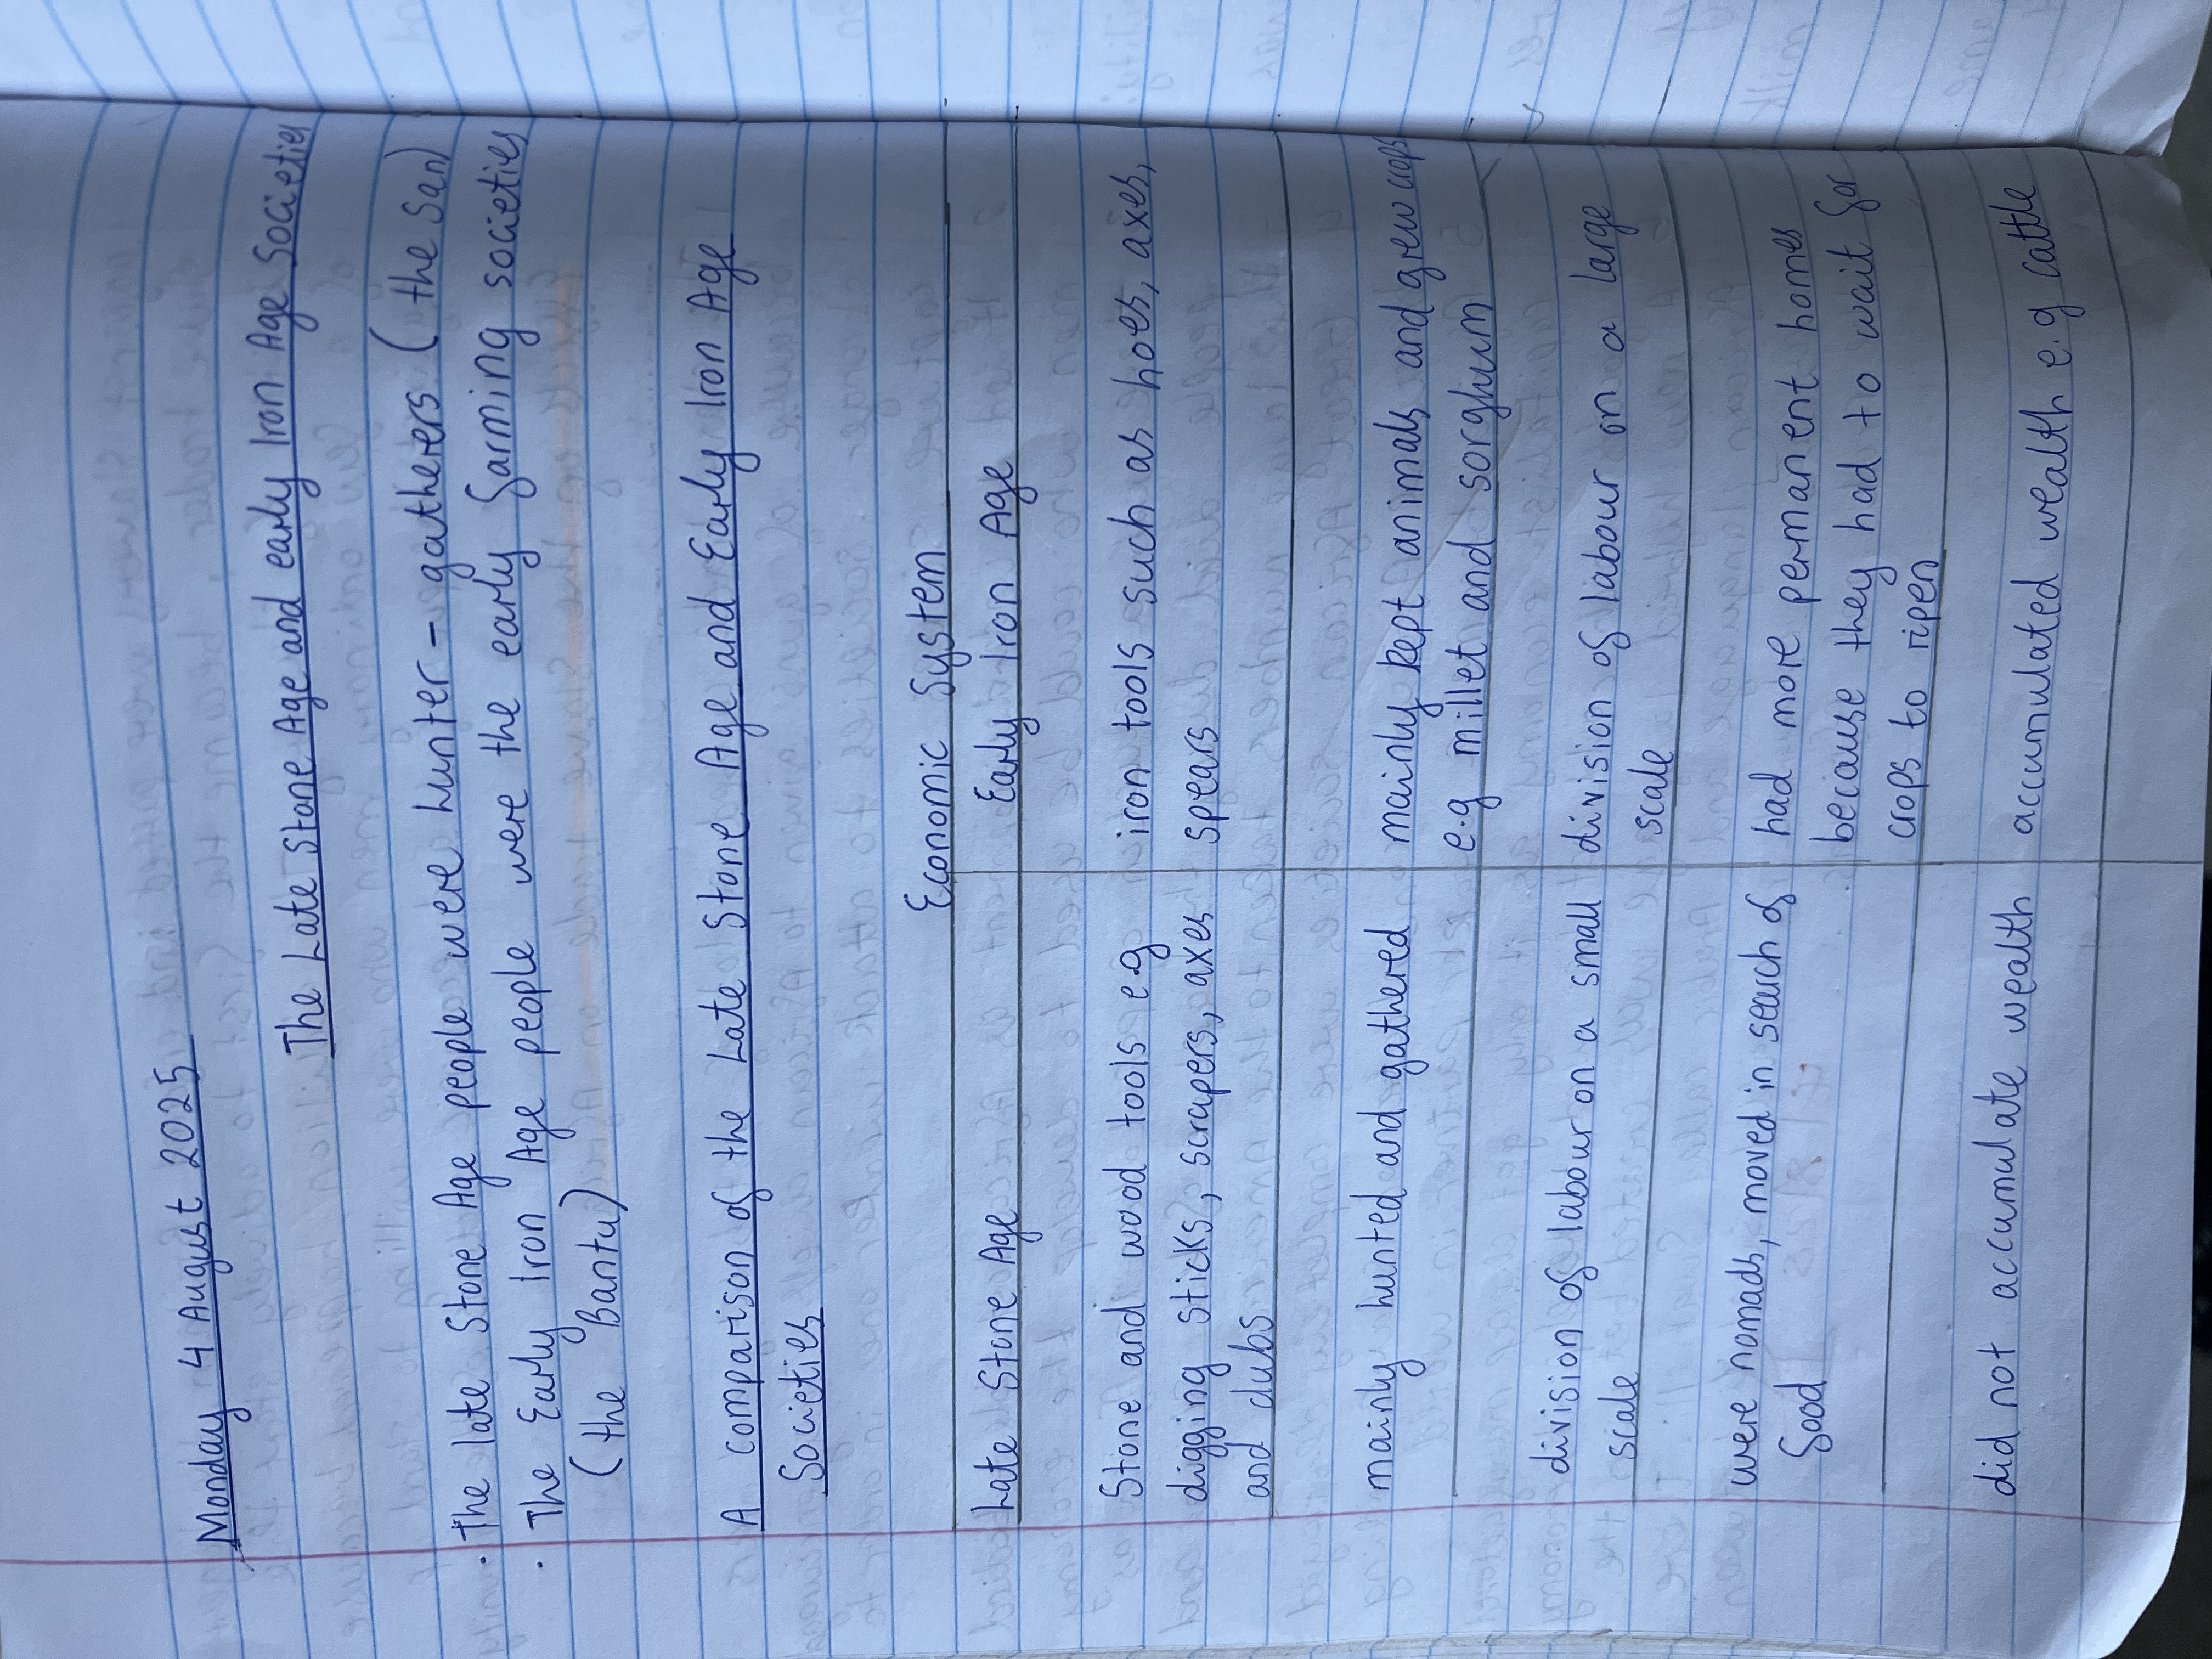 Monday 4 August 2025
The Late Stone Age and early Iron Age societies
· The late Stone Age people were hunter-gatherers (the San)
· The Early Iron Age people were the early farming societies
(the Bantu)
A comparison of the Late Stone Age and Early Iron Age
Societies
Economic System
Late Stone Age
Early Iron Age
Stone and wood tools e.g
digging sticks, scrapers, axes
and clubs
iron tools such as hoes, axes,
spears
mainly hunted and gathered
mainly kept animals and grew crops
e.g millet and sorghum
division of labour on a small
scale
division of labour on a large
scale
were nomads, moved in search of
food
had more permanent homes
because they had to wait for
crops to ripen
did not accumulate wealth
accumulated wealth e.g cattle